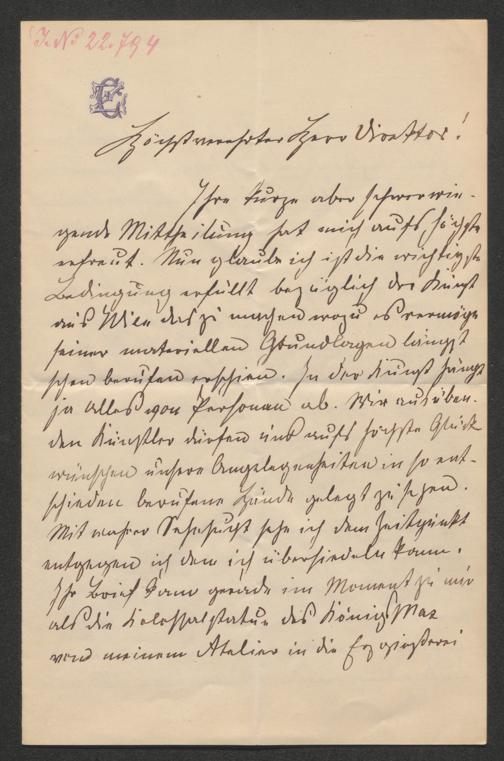 J. No 22.794
Höchstverehrter Herr Direktor!
Ihre kurze aber schwerwie-
gende Mittheilung hat mich aufs höchste
erfreut. Nun glaube ich ist die wichtigste
Bedingung erfüllt bezüglich der Kunst
aus Wien das zu machen wozu es vermöge
seiner materiellen Grundlagen längst
schon berufen erschien. In der Kunst hängt
ja alles von Personen ab. Wir ausüben-
den Künstler dürfen uns aufs höchste Glück
wünschen unsere Angelegenheiten in so ent-
schieden berufene Hände gelegt zu sehen.
Mit wahrer Sehnsucht sehe ich dem Zeitpunkt
entgegen in dem ich übersiedeln kann.
Ihr Brief kam gerade im Moment zu mir
als die Kolossalstatue des Königs Max
von meinem Atelier in die Erzgießerei